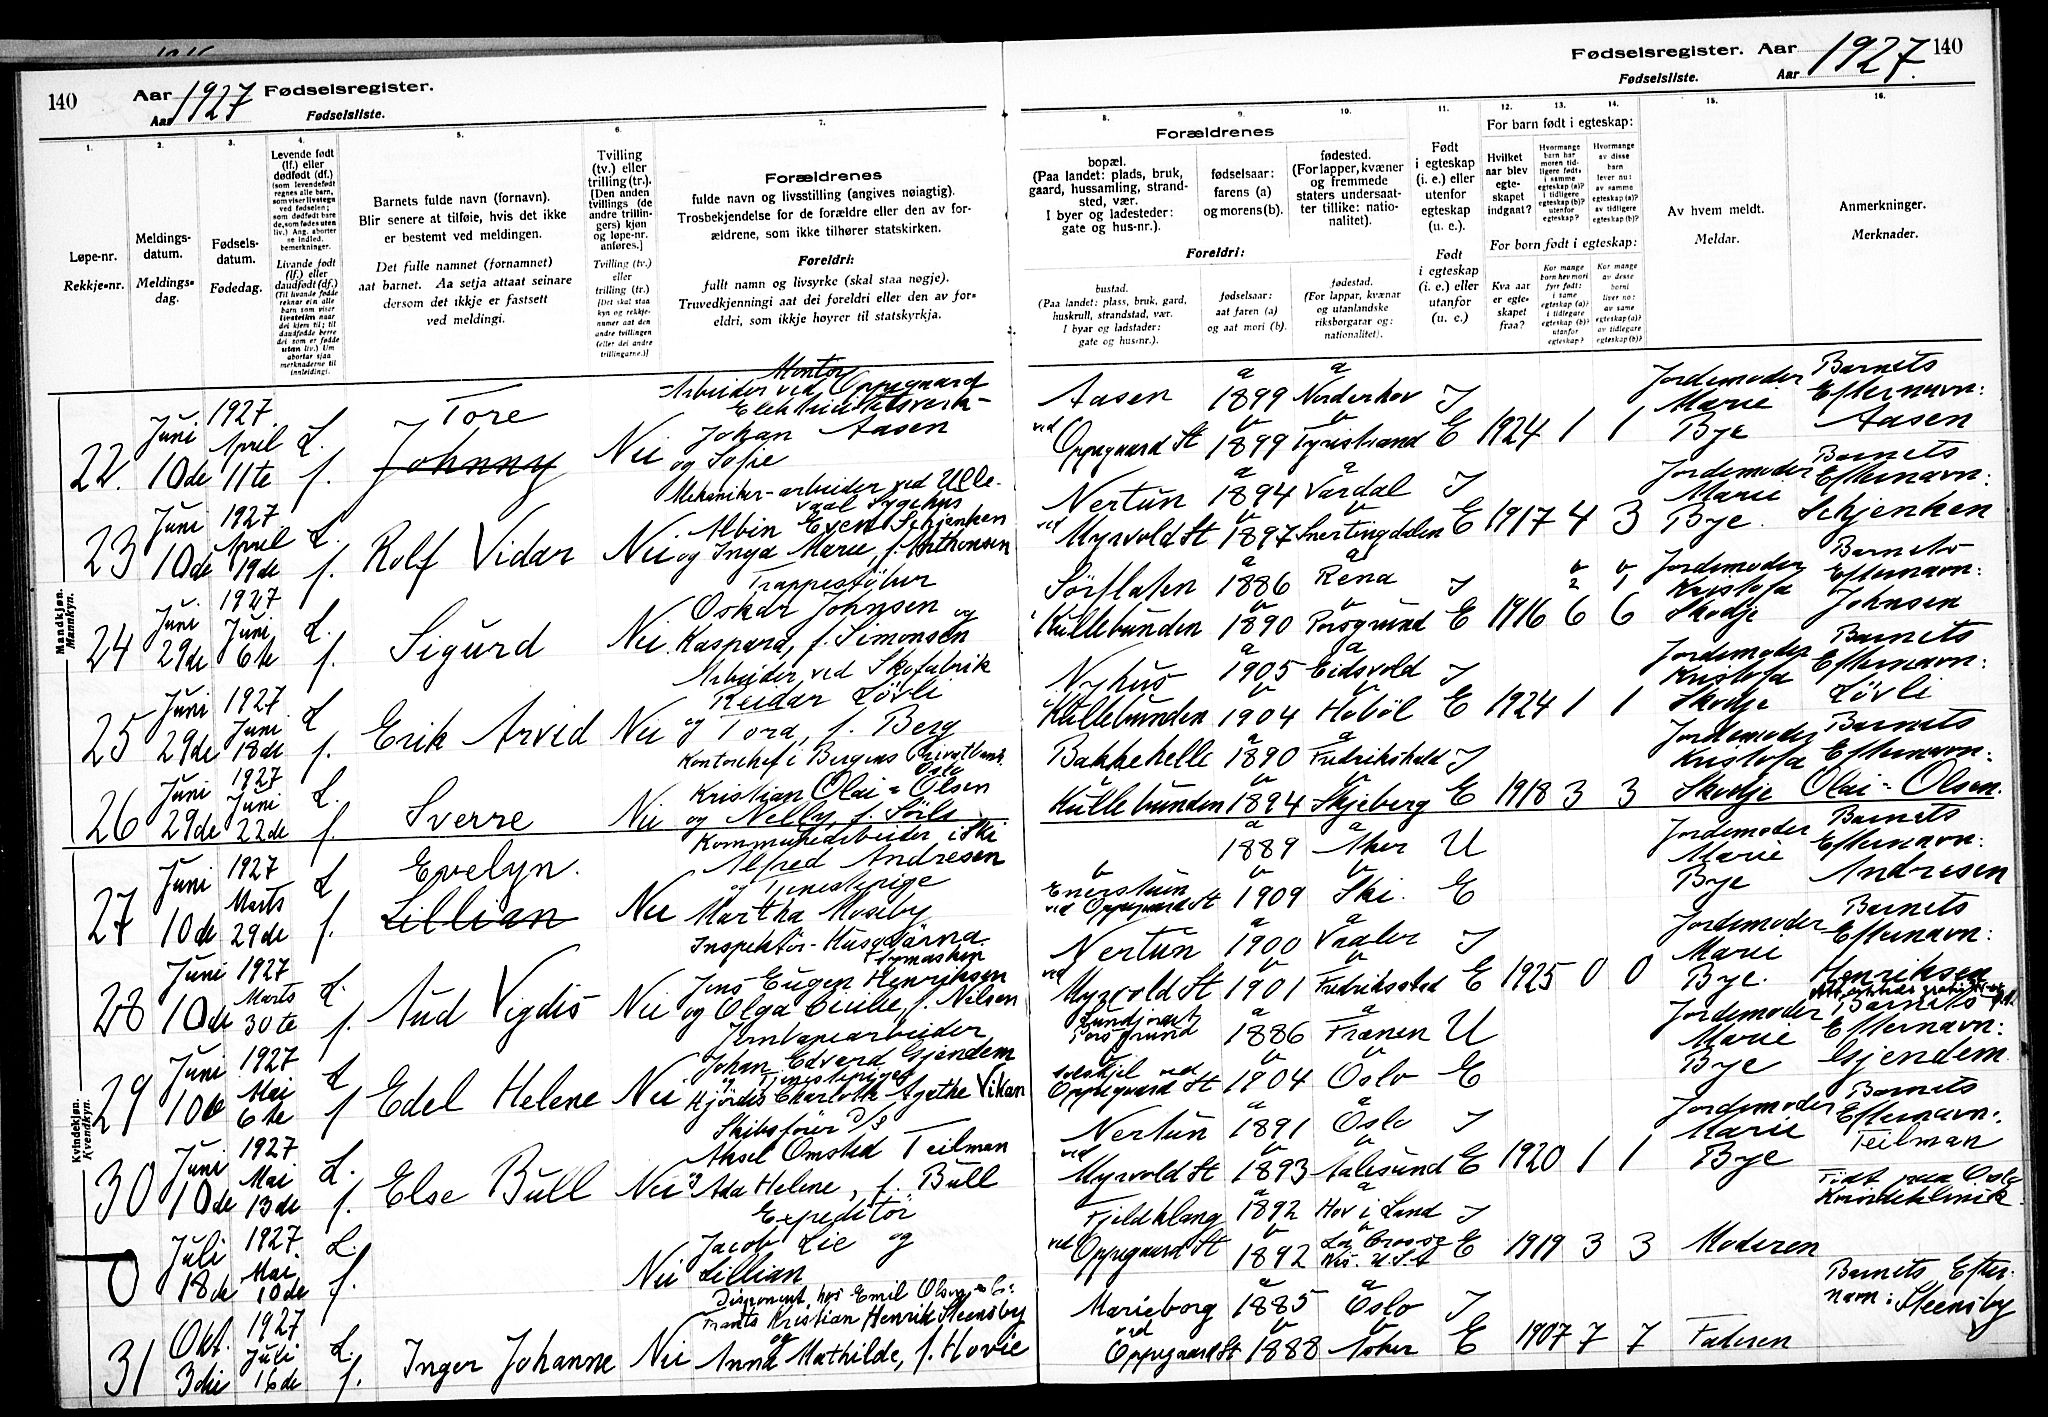 140
Aar 1927 Fødselsregister.
Aar
Fødselsliste.
1. 2. 3. 4. 5. 6. 7.
Løpe-nr.
Rekkje-nr.
Meldings-
datum.
Meldings-
dag.
Fødsels-
datum.
Fødedag.
Levende født
(lf.) eller
dødfødt (df.)
Livande født
(lf.) eller
daudfødt (df.)
Barnets fulde navn (fornavn).
Blir senere at tilføie, hvis det ikke
er bestemt ved meldingen.
Det fulle namnet (fornamnet)
aat barnet. Aa setja attaat seinare
dersom det ikkje er fastsett
ved meldingi.
Tvilling
(tv.) eller
trilling (tr.).
[Den anden
tvillings (de
andre trillin-
gers) kjøn
og løpe-nr.
anføres.]
Tvilling (tv.)
eller
trilling (tr.)
Forældrenes
fulde navn og livsstilling (angives nøiagtig).
Trosbekjendelse for de forældre eller den av for-
ældrene, som ikke tilhører statskirken.
Foreldri:
fullt namn og livsyrke (skal staa nøgje).
Truvedkjenningi aat dei foreldri eller den av for-
eldri, som ikkje høyrer til statskyrkja.
Mandkjøn.
Mannkyn.
22. Juni 10de 1927 April 11te L. f.
Tore
Johnny
Nei
Montør
Arbeider ved Oppegaard
Elektricitetsverk
Johan Aasen
og Sofie
23 Juni 10de 1927 April 19de L. f.
Rolf Vidar
Nei
Mekaniker-arbeider ved Ulle-
vaal Sygehus
Albin Even Schjenken
og Inga Marie, f. Anthonsen
24 Juni 29de 1927 Juni 6te L. f.
Sigurd
Nei
Trappestøber
Oskar Johnsen og
Kaspara, f. Simonsen
25 Juni 29de 1927 Juni 18de L f.
Erik Arvid
Nei
Arbeider ved Skofabrik
Reidar Løvli
og Tora, f. Berg
26 Juni 29de 1927 Juni 22de L. f.
Sverre
Nei
Kontorchef i Bergens Privatbank
Oslo
Kristian Olai-Olsen
og Nelly, f. Sörli
Kvindekjøn.
Kvendkyn.
27 Juni 10de 1927 Marts 29de L f.
Evelyn.
Lillian
Nei
Kommunearbeider i Ski
Alfred Andresen
og Tjenestepige
Martha Moseby
28 Juni 10de 1927 Marts 30te L. f.
Aud Vigdis
Nei
Inspektör-Husqvarna
Symaskin
Jens Eugen Henriksen
og Olga Cecilie, f. Nilsen
29 Juni 10de 1927 Mai 6te L f.
Edel Helene
Nei
Johan Edvard Gjendem
og Tjenestepige
Hjördis Charlotte Agathe Vikan
30 Juni 10de 1927 Mai 13de L. f.
Else Bull
Nei
Skibsfører D/S
Aksel Omsted Teilman
og Ada Helene, f. Bull
0 Juli 18de 1927 Mai 10de L. f.
Nei
Expeditör
Jacob Lie og
Lillian
31 Okt. 3die 1927 Juli 16de L. f.
Inger Johanne
Nei
Disponent, hos Emil Olsen
Frants Kristian Henrik Steensby
og
Anna Mathilde, f. Hovie
Fødselsregister. Aar 1927. 140
Fødselsliste. Aar
8. 9. 10. 11. 12. 13. 14. 15. 16.
Forældrenes
bopæl.
(Paa landet: plads, bruk,
gaard, hussamling, strand-
sted, vær.
I byer og ladesteder:
gate og hus-nr.).
fødselsaar:
farens (a)
og morens (b).
fødested.
(For lapper, kvæner
og fremmede
staters undersaat-
ter tillike: natio-
nalitet).
Foreldri:
bustad.
(Paa landet: plass, bruk, gard,
huskrull, strandstad, vær.
I byar og ladstader:
gate og hus-nr.).
fødselsaar:
aat faren (a)
og aat mori (b).
fødestad.
(For lappar, kvænar
og utanlandske
riksborgarar og:
nationalitet).
Født
i egteskap
(i. e.) eller
utenfor
egteskap
(u. e.).
Født
i egteskap
(i. e.) eller
utanfor
(u. e.)
For barn født i egteskap:
Hvilket
aar blev
egte-
skapet
indgaat?
For born født i egteskap:
Kva aar
er egte-
skapet
fraa?
Av hvem meldt.
Meldar.
Anmerkninger.
Merknader.
Aasen
ved
Oppegaard St
a 1899 b 1899
a Norderhov b Tyristrand
I E 1924 1 1
Jordemoder Marie Bye
Barnets Efternavn: Aasen
Nertun
ved
Myrvold St
a 1894 b 1897
a Vardal b Snertingdalen
I E 1917 4 3
Jordemoder Marie Bye.
Barnets Efternavn: Schjenken
Sørflaten
i Kullebunden
a 1886 b 1890
a Rena b Porsgrund
I E 1916 b 2 6 b 1 6
Jordemoder Kristofa Skodje
Barnets Efternavn: Johnsen
Nyhus
i Kullebunden
a 1905 b 1904
a Eidsvold b Hobøl
I E 1924 1 1
Jordemoder Kristofa Skodje
Barnets Efternavn: Løvli
Bakkehelli
Kullebunden
a 1890 b 1894
a Fredrikshald b Skjeberg
I E 1918 3 3
Jordemoder Kristofa Skodje
Barnets Efternavn: Olai-Olsen.
b
Enerstuen
ved Oppegaard St
a 1889 b 1909
a Aker b Ski.
U E
Jordemoder Marie Bye
Barnets Efternavn: Andresen
Nertun
ved
Myrvold St
a 1900 b 1901
a Vaaler b Fredriksstad
I E 1925 0 0
Jordemoder Marie Bye.
Barnets Efternavn: Henriksen
Porsgrund
b
ved
Oppegaard St
a 1886 b 1904
a Frænen b Oslo
U E
Jordemoder Marie Bye
Barnets Efternavn: Gjendem.
Nertun
ved
Myrvold St
a 1891 b 1893
a Oslo b Aalesund
I E 1920 1 1
Jordemoder Marie Bye
Barnets Efternavn: Teilman
Fjeldklang
ved
Oppegaard St
a 1892 b 1892
a Hov i Land b La Crosse
Wis. U.S.A
I E 1919 3 3
Moderen
Födt paa Oslo
Kvindeklinik.
Marieborg
ved
Oppegaard St
a 1885 b 1888
a Oslo b Aker
I E 1907 7 7
Faderen
Barnets Efter-
navn: Steensby